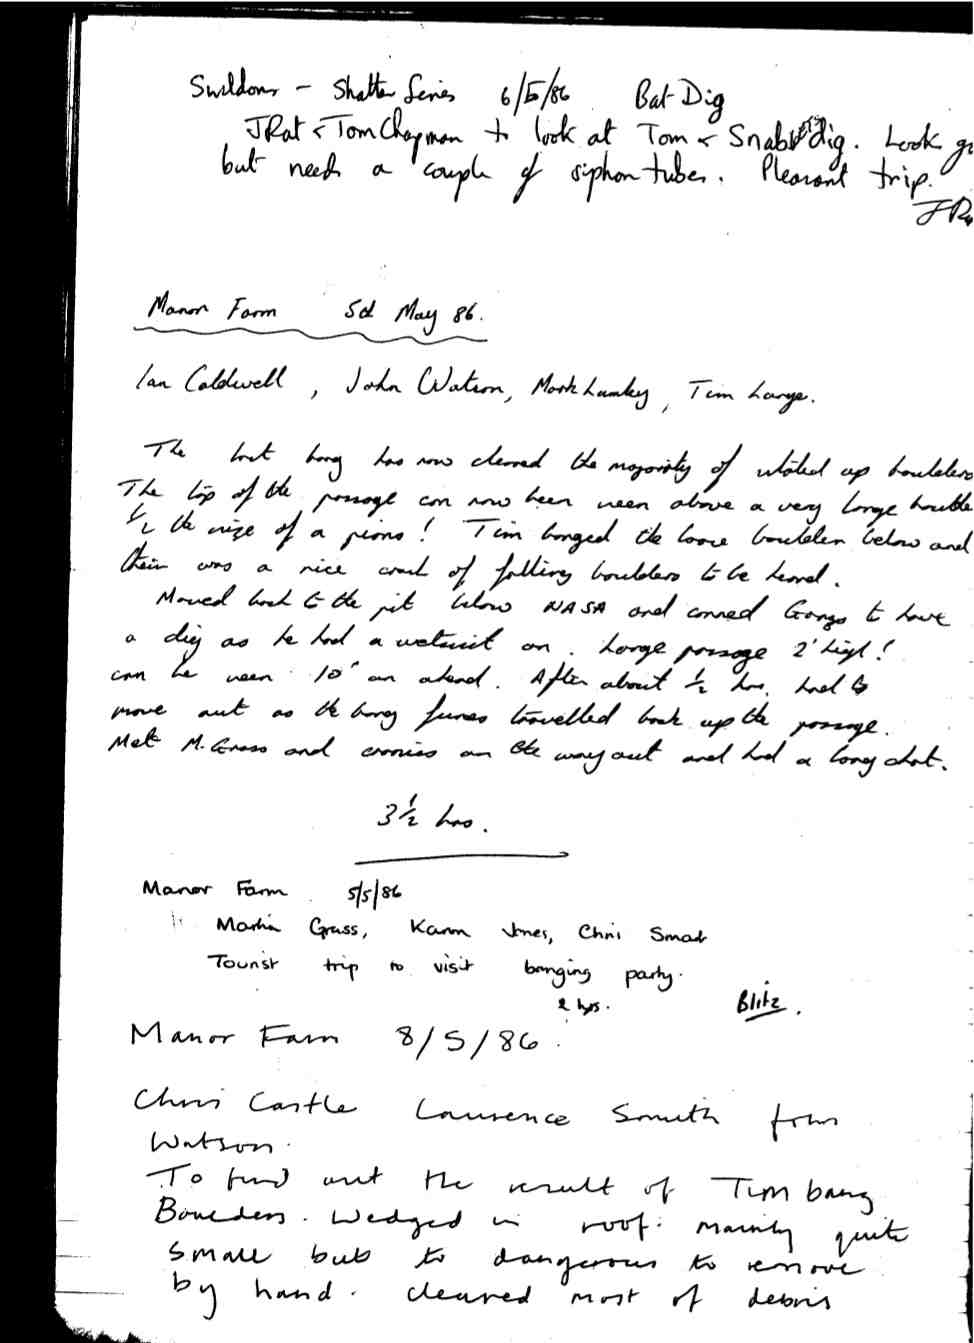 Swildons - Shatter Series 6/5/86 Bat Dig
JRat & Tom Chapman to look at Tom & Snab's dig. Look
but needs a couple of siphon tubes. Pleasant trip.
Manor Farm 5d May 86.
Ian Caldwell, John Watson, Mark Lumley, Tim Large.
The last bang has now cleared the majority of up boulders
The top of the passage can now been seen above a very large
1/2 the size of a piano! Tim banged the loose boulders below and
their was a nice crash of falling boulders to be heard.
Moved back to the pit below NASA and conned Gonzo to have
a dig as he had a wetsuit on. Large passage 2' high!
can be seen 10' on ahead. After about 1/2 hr. had to
move out as the bang fumes travelled back up the passage.
Met M. Grass and cronies on the way out and had a long chat.
3 1/2 hrs.
Manor Farm 5/5/86
Martin Grass, Karen Jones, Chris Smart
Tourist trip to visit banging party.
2 hrs.
Blitz.
Manor Farm 8/5/86
Chris Castle Laurence Smith
Watson.
To find out the result of Tim bang
Boulders. Wedged in roof. mainly quite
small but to dangerous to remove
by hand. cleared most of debris